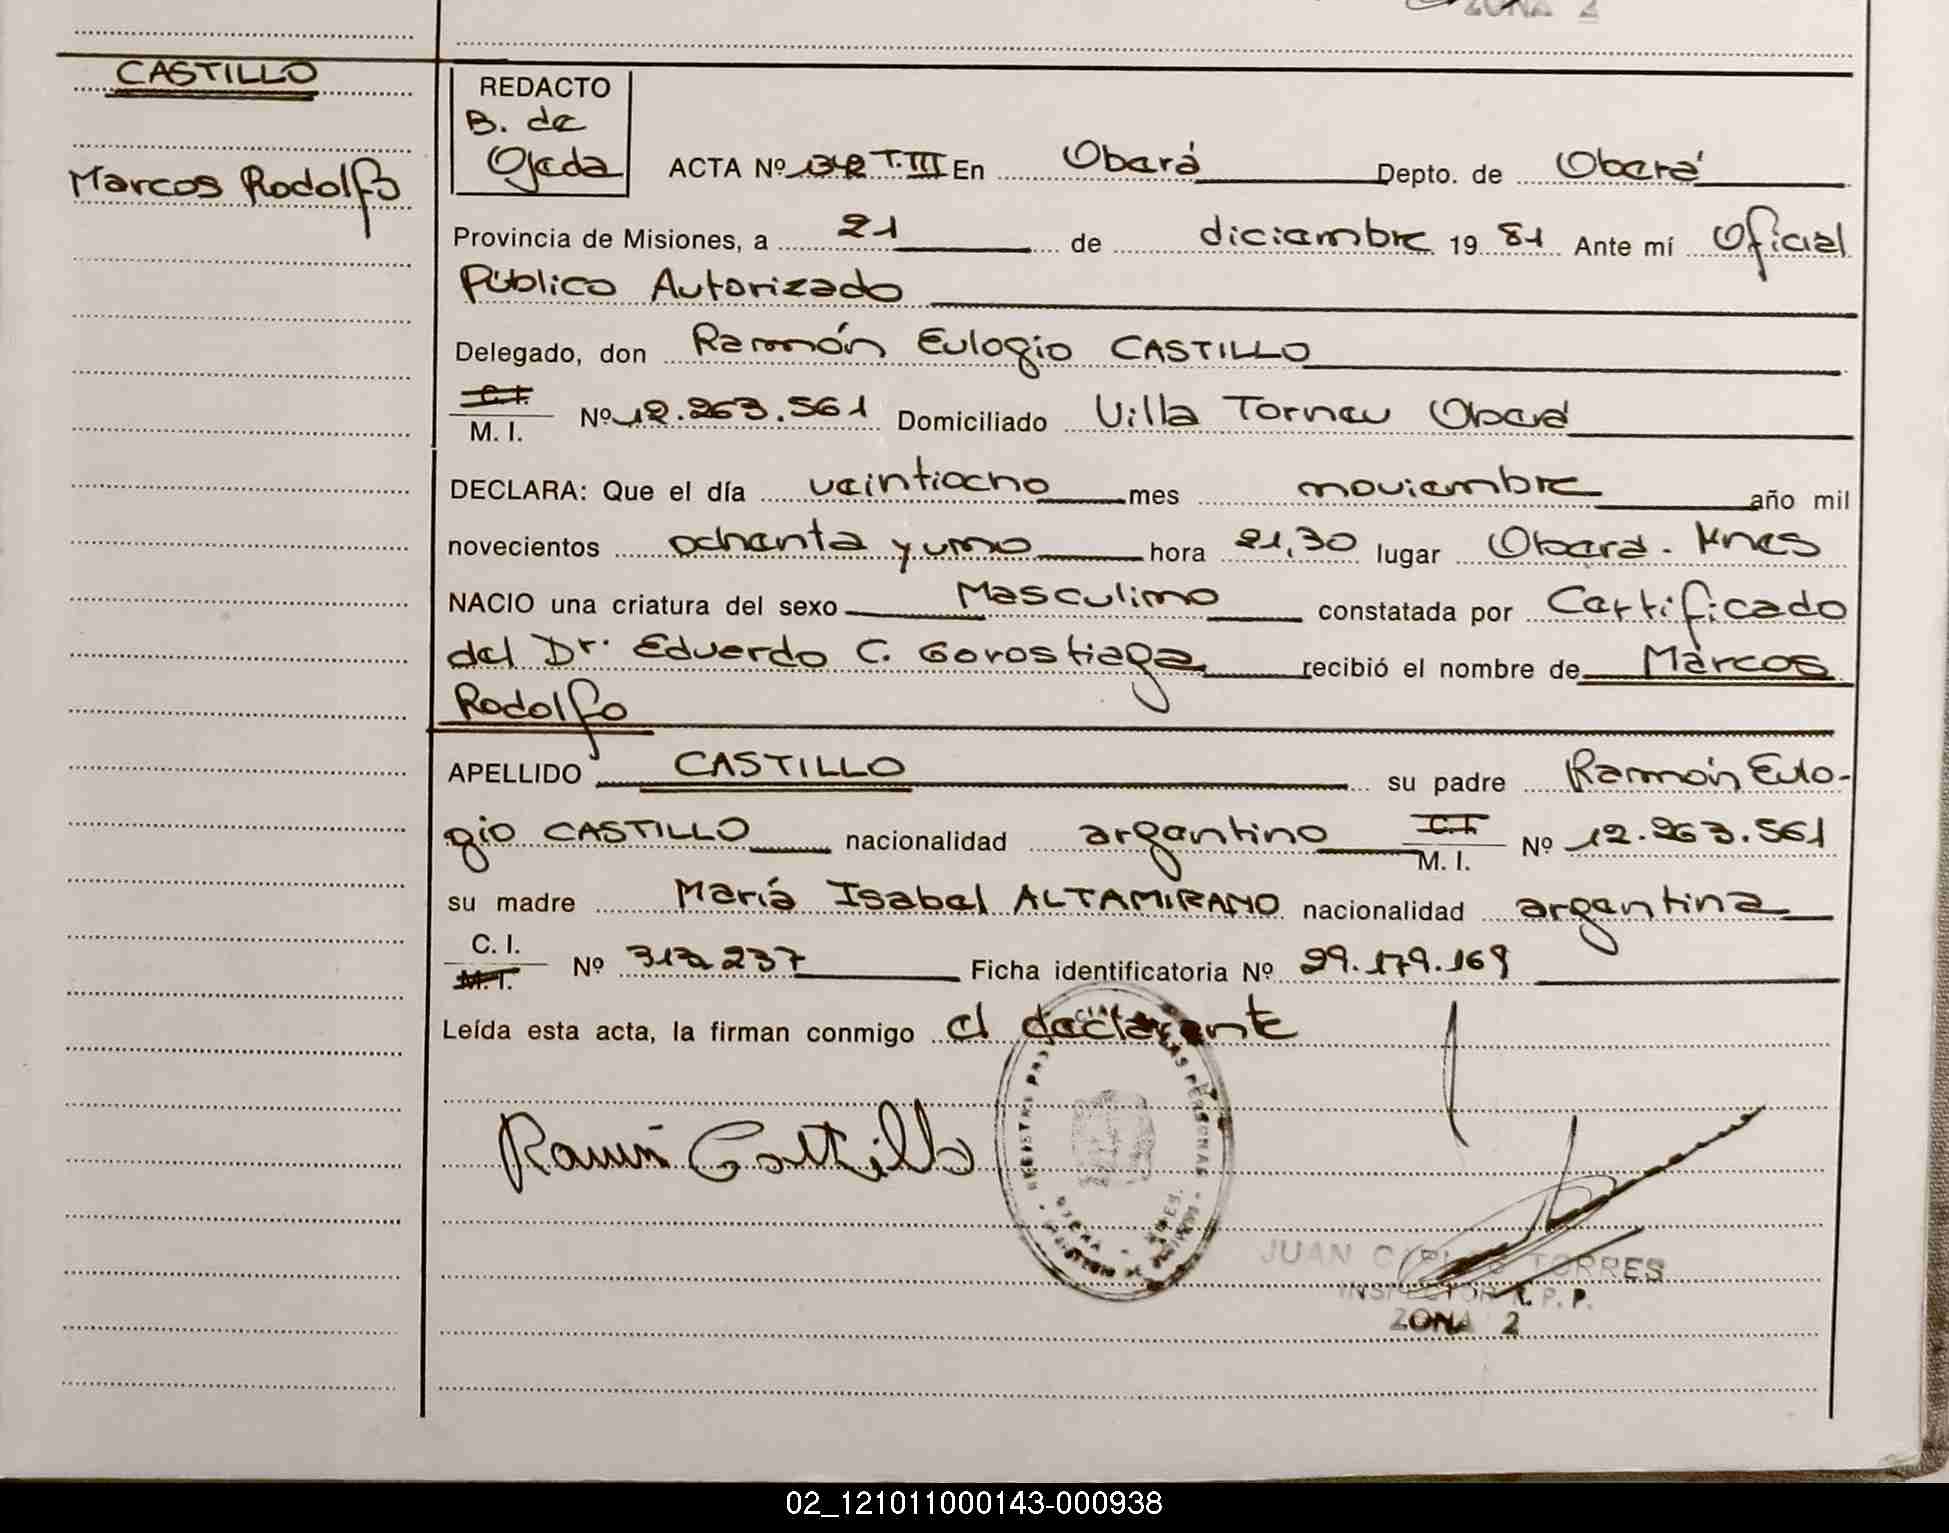 ZONA 2
CASTILLO
Marcos Rodolfo
REDACTO
B. de
Ojeda
ACTA Nº 1342 T.III En Oberá Depto. de Oberá
Provincia de Misiones, a 21 de diciembre 19 81 Ante mí Oficial
Público Autorizado
Delegado, don Ramón Eulogio CASTILLO
C. I.
M. I. Nº 12.263.561 Domiciliado Villa Torneu Oberá
DECLARA: Que el día veintiocho mes noviembre año mil
novecientos ochenta y uno hora 21,30 lugar Oberá - Mnes
NACIO una criatura del sexo Masculino constatada por Certificado
del Dr. Eduardo C. Gorostiaga recibió el nombre de Marcos
Rodolfo
APELLIDO CASTILLO su padre Ramón Eulo-
gio CASTILLO nacionalidad argentino C. I. M. I. Nº 12.263.561
su madre María Isabel ALTAMIRANO nacionalidad argentina
C. I.
M. I. Nº 313.237 Ficha identificatoria Nº 29.179.169
Leída esta acta, la firman conmigo el declarante
Ramón Castillo
JUAN CARLOS TORRES
INSPECTOR R. P. P.
ZONA 2
02_121011000143-000938